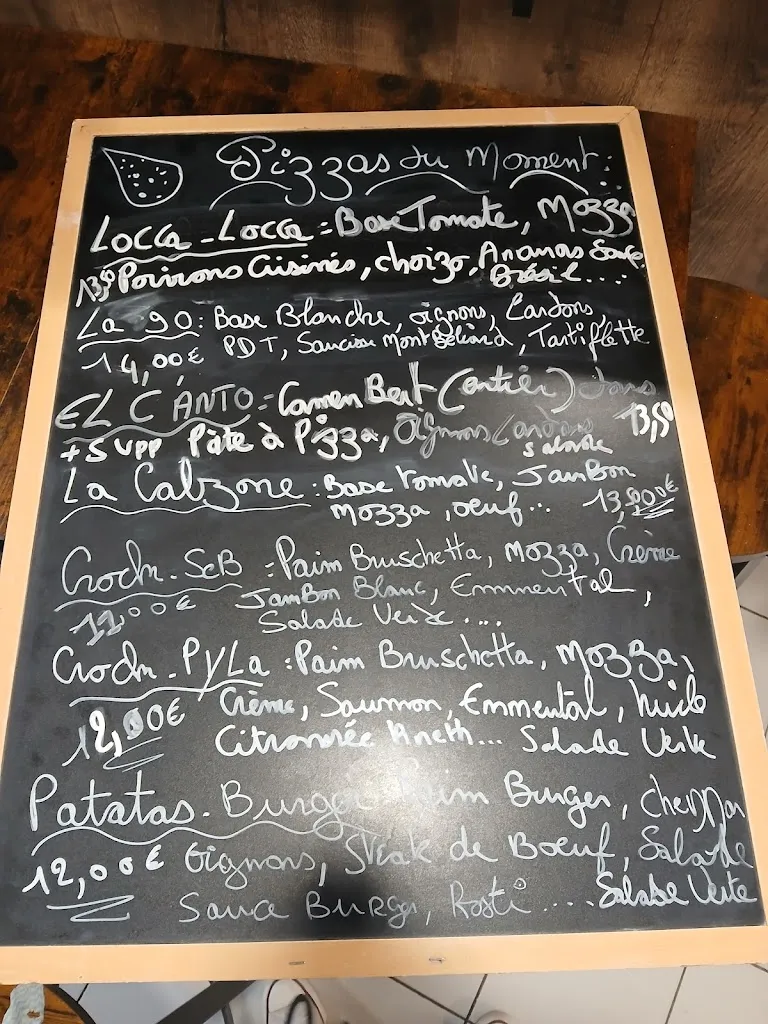 Pizzas du Moment:
Locca-Locca: Base Tomate, Mozza
13,50 Poivrons Cuisinés, choizo, Ananas Sauce
Brésil....
La 90: Base Blanche, oignons, Lardons,
14,00€ PDT, Saucisse Montbéliard, Tartiflette
EL CANTO: Camenbert (entier) dans
+ SUPP Pâte à Pizza, Oignons Lardons 13,50
salade
La Calzone: Base tomate, JamBon
Mozza, oeuf... 13,00€
Croch-SeB: Paim Bruschetta, Mozza, Crème
12,00€ JamBon Blanc, Emmental,
Salade Verte....
Croch-PyLa: Paim Bruschetta, Mozza,
12,00€ Crème, Saumon, Emmental, huile
Citronnée Aneth... Salade Verte
Patatas-Burger Paim Burger, cheddar
12,00€ Oignons, Steak de Boeuf, Salade
Sauce Burger, Rosti.... Salade Verte